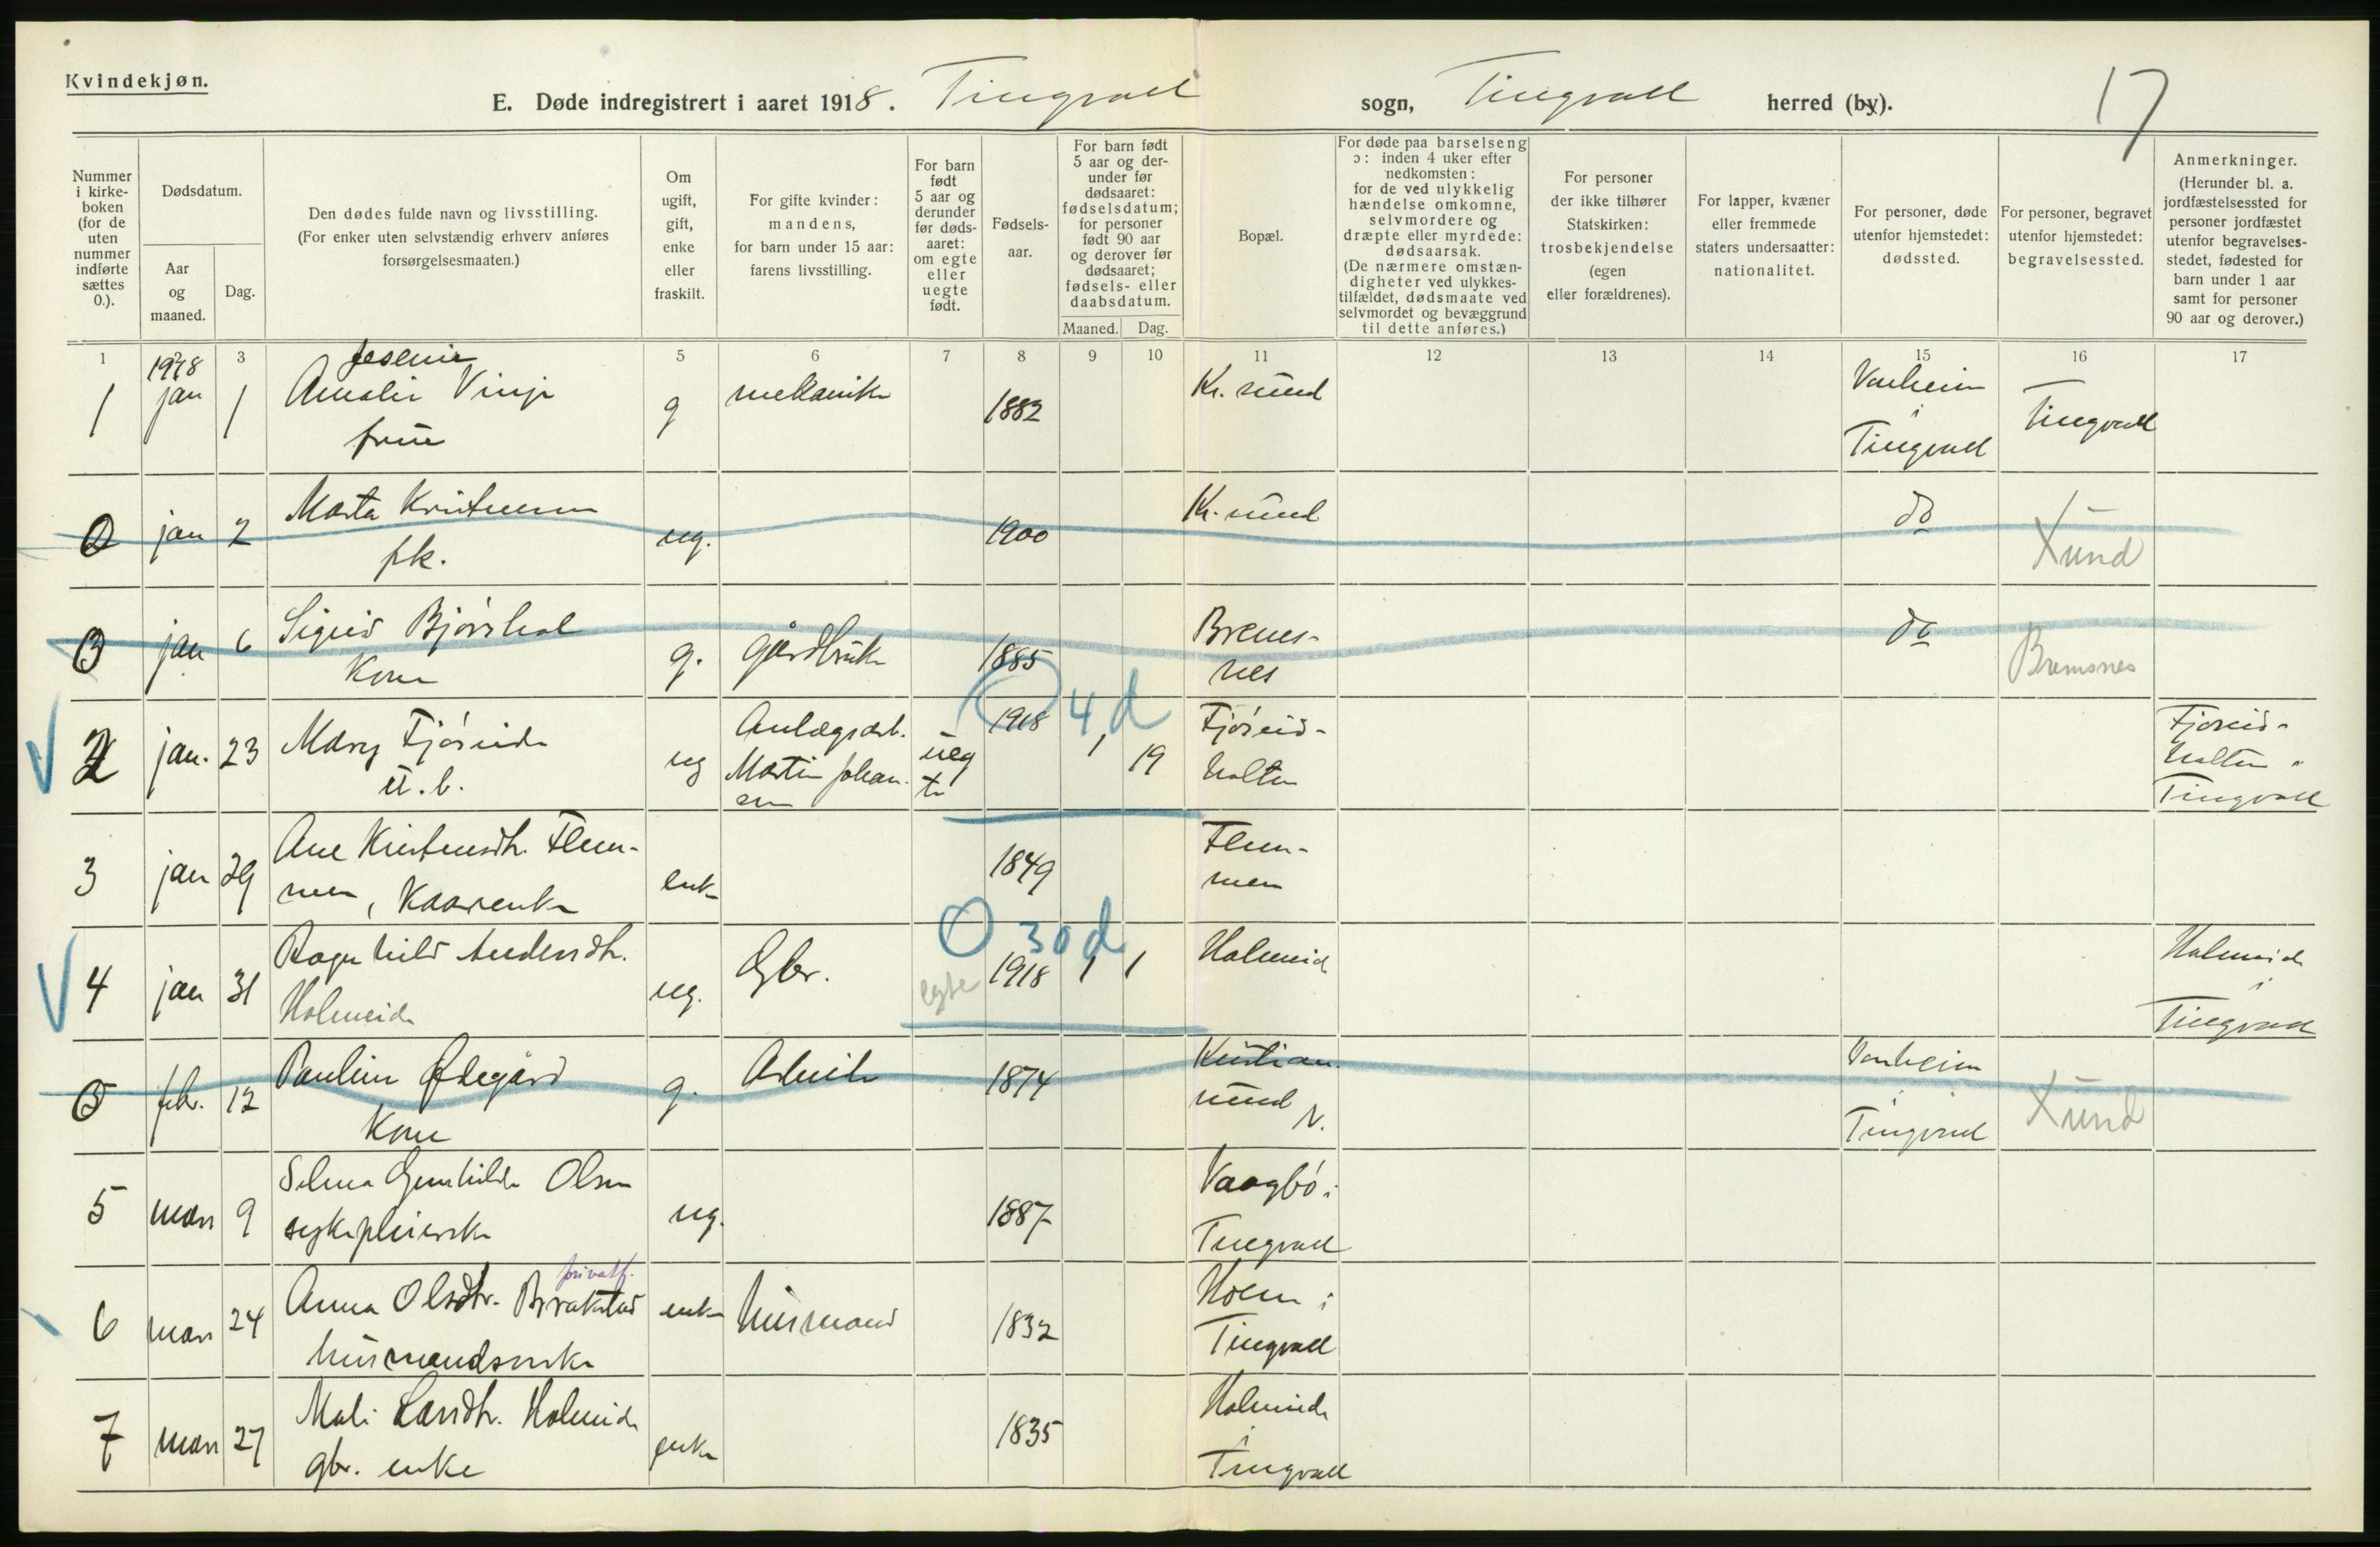 Kvindekjøn.
E. Døde indregistrert i aaret 1918. Tingvoll sogn, Tingvoll herred (by).
17
Nummer i kirke-boken (for de uten nummer indførte sættes 0.).
Dødsdatum.
Aar og maaned.
Dag.
Den dødes fulde navn og livsstilling. (For enker uten selvstændig erhverv anføres forsørgelsesmaaten.)
Om ugift, gift, enke eller fraskilt.
For gifte kvinder: mandens, for barn under 15 aar: farens livsstilling.
For barn født 5 aar og derunder før døds-aaret: om egte eller uegte født.
Fødsels-aar.
For barn født 5 aar og der-under før dødsaaret: fødselsdatum; for personer født 90 aar og derover før dødsaaret; fødsels- eller daabsdatum.
Maaned. Dag.
Bopæl.
For døde paa barselseng ɔ: inden 4 uker efter nedkomsten: for de ved ulykkelig hændelse omkomne, selvmordere og dræpte eller myrdede: dødsaarsak. (De nærmere omstæn-digheter ved ulykkes-tilfældet, dødsmaate ved selvmordet og bevæggrund til dette anføres.)
For personer der ikke tilhører Statskirken: trosbekjendelse (egen eller forældrenes).
For lapper, kvæner eller fremmede staters undersaatter: nationalitet.
For personer, døde utenfor hjemstedet: dødssted.
For personer, begravet utenfor hjemstedet: begravelsessted.
Anmerkninger. (Herunder bl. a. jordfæstelsessted for personer jordfæstet utenfor begravelses-stedet, fødested for barn under 1 aar samt for personer 90 aar og derover.)
1 2 3 5 6 7 8 9 10 11 12 13 14 15 16 17
1918
1 jan 1 Amalie Vinje g mekanike 1882 Kr. sund
frue
i Tingvoll Tingvoll
0 jan 2 Marta Kristensen ug. 1900 Kr. sund do Xsund
pk.
0 jan 6 Sigrid Bjørshol g. gårdbruke 1885 Brems-nes do Bremsnes
Kone
4 d
2 jan. 23 Mary Fjøseide ug Anlægsarb. Martin Johansen uegte 1918 1 19 Fjøseid-holten Fjøseid-holten i Tingvoll
u. b.
3 jan 29 Ane Kristensdtr. Flem-men, Kaarenke enke 1849 Flem-men
30 d
4 jan 31 Ragnhild Andersdtr. ug. Gbr. egte 1918 1 1 Holmeide Holmeide i Tingvoll
Holmeide
0 febr. 12 Pauline Ødegård g. Arbeide 1874 Kristian-sund N. i Tingvoll Xsund
Kone
5 mars 9 Selma Gunhilde Olsen ug. 1887 Vaagbø i Tingvoll
sykepleierske
privatf.
6 mars 24 Anna Olsdtr. Brakstad enke husmand 1832 Holm i Tingvoll
husmandsenke
7 mars 27 Mali Larsdtr. Holmeide enke 1835 Holmeide i Tingvoll
gbr. enke